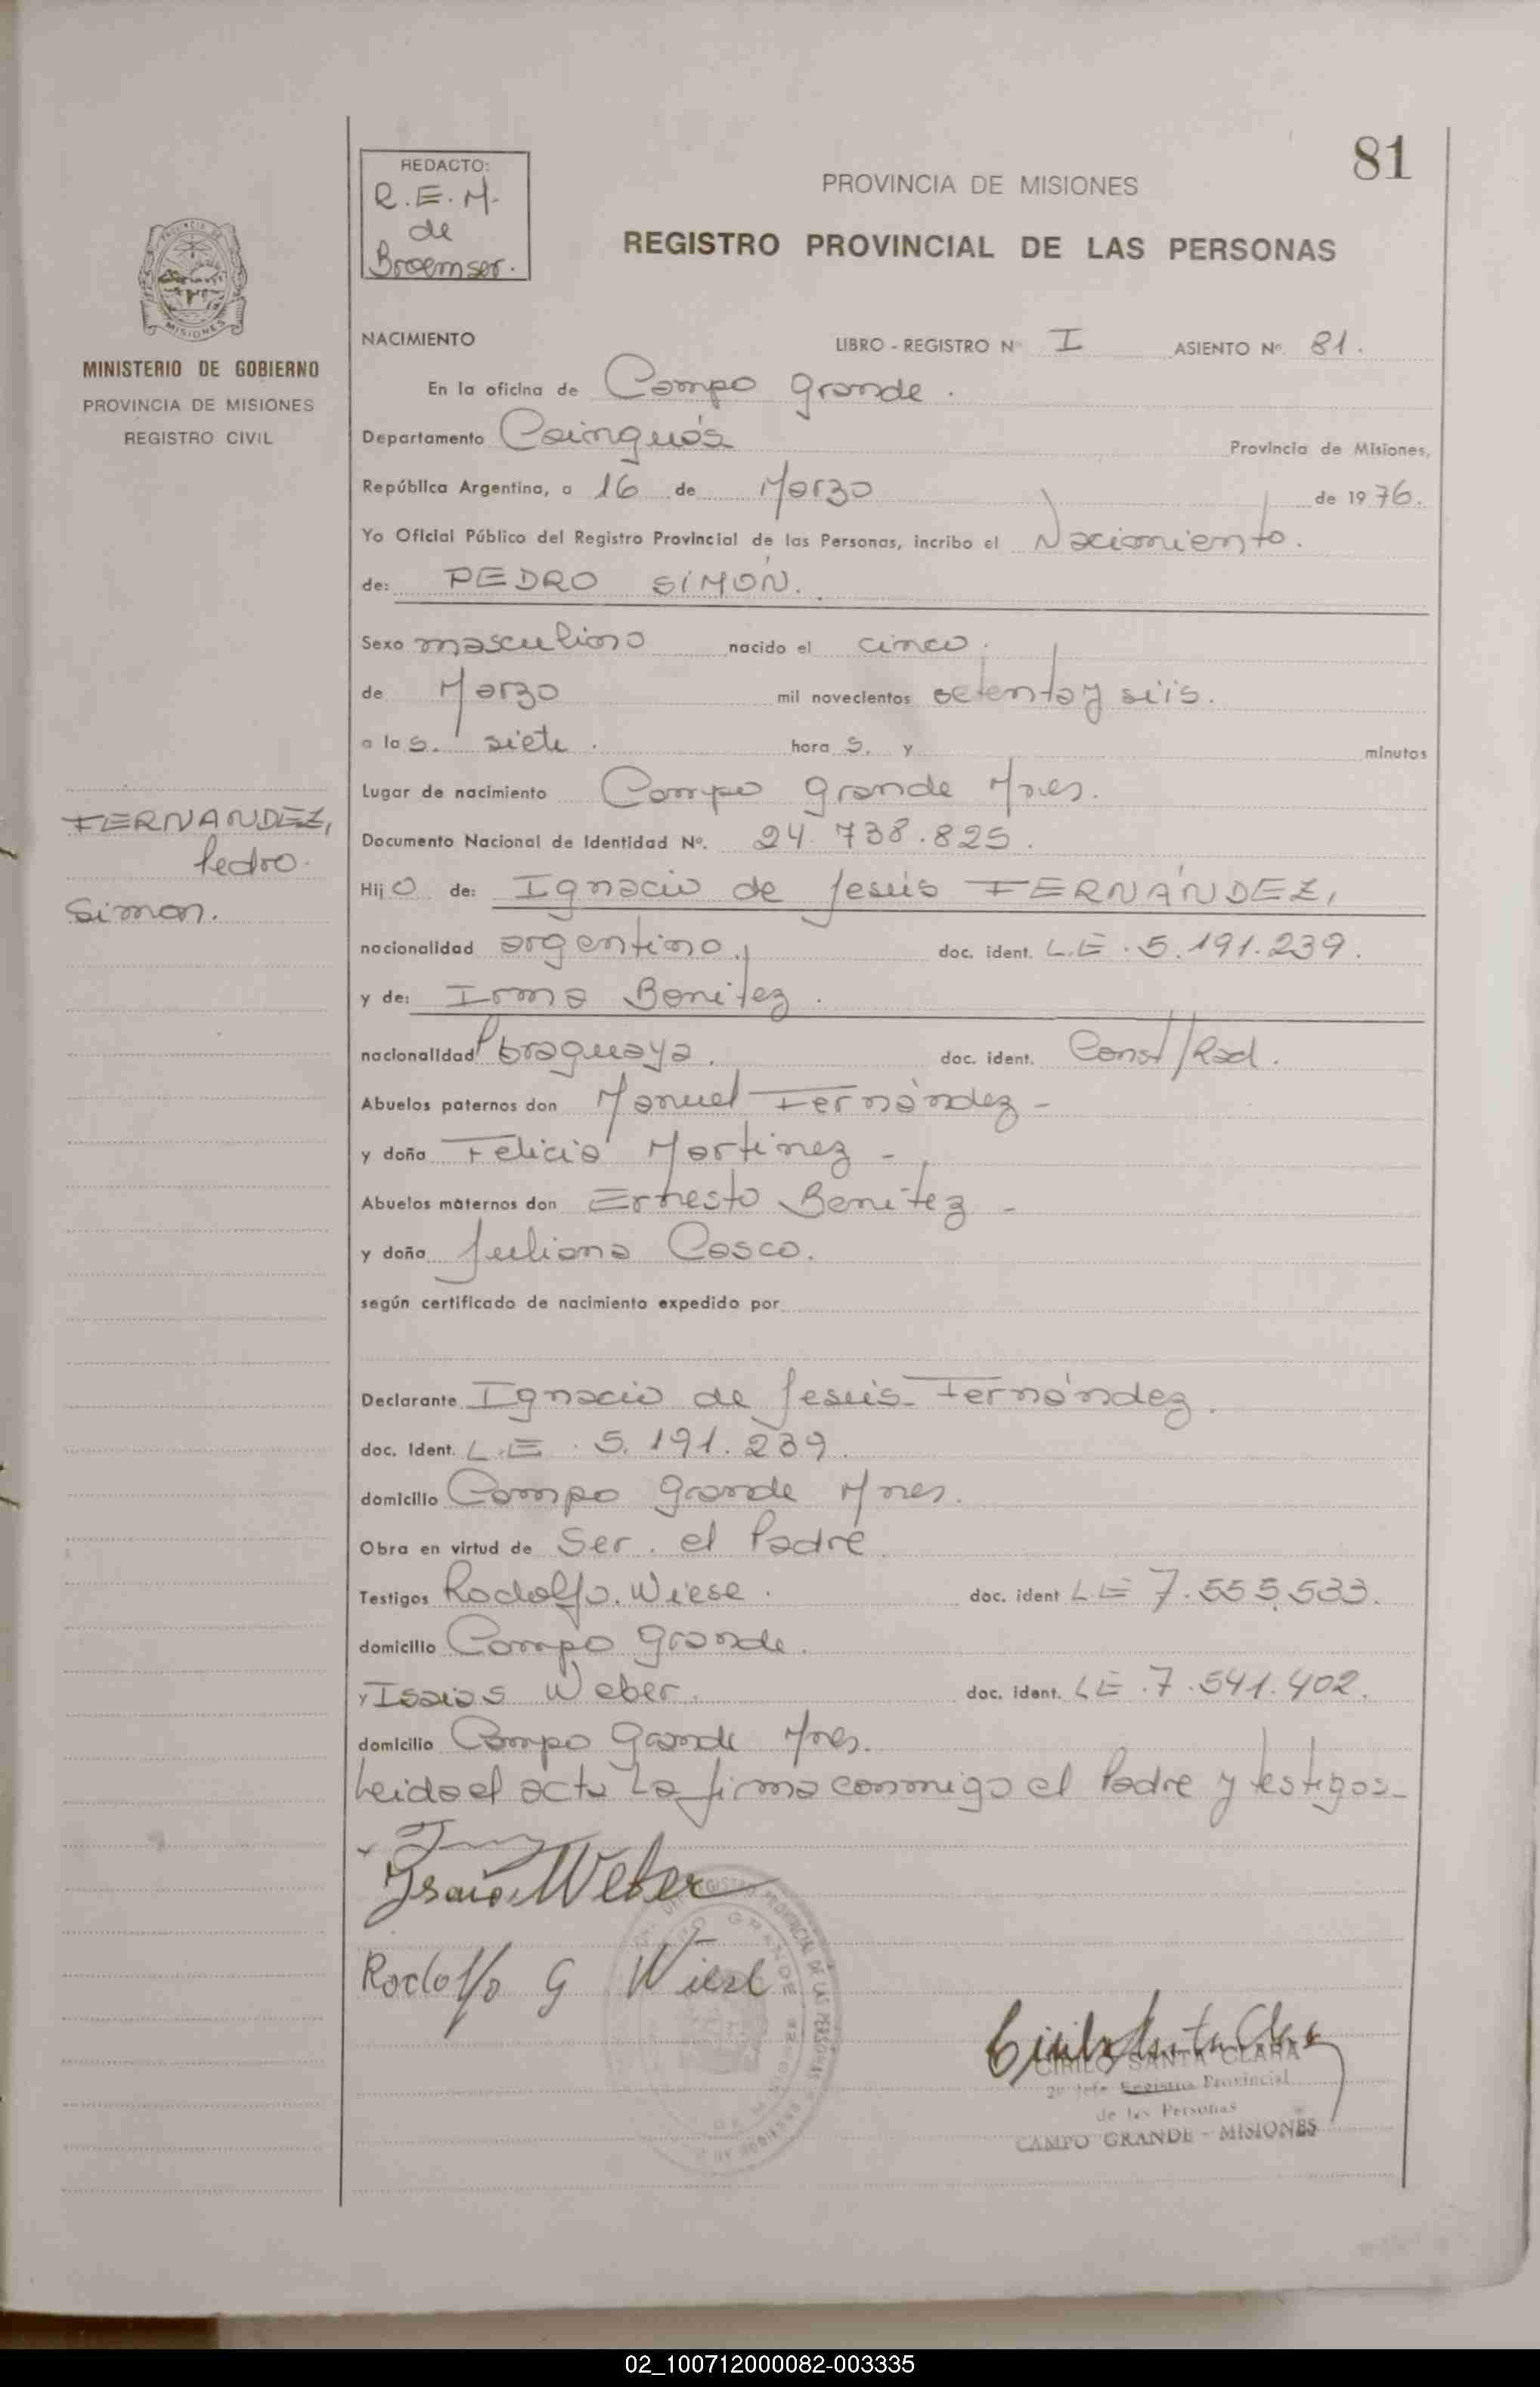 81
REDACTO:
R.E.M.
de
Broemser.
PROVINCIA DE MISIONES
REGISTRO PROVINCIAL DE LAS PERSONAS
MINISTERIO DE GOBIERNO
PROVINCIA DE MISIONES
REGISTRO CIVIL
NACIMIENTO LIBRO - REGISTRO Nº I ASIENTO Nº 81.
En la oficina de Campo Grande.
Departamento Cainguás Provincia de Misiones,
República Argentina, a 16 de Marzo de 1976.
Yo Oficial Público del Registro Provincial de las Personas, incribo el Nacimiento.
de: PEDRO SIMÓN.
Sexo masculino nacido el cinco.
de Marzo mil novecientos setenta y seis.
a las. siete. hora s. y minutos
Lugar de nacimiento Campo Grande Mnes.
FERNANDEZ,
Pedro.
Simon.
Documento Nacional de Identidad Nº. 24.738.825.
Hijo de: Ignacio de Jesús FERNÁNDEZ,
nacionalidad argentino, doc. ident. L.E. 5.191.239.
y de: Irma Benitez.
nacionalidad Paraguaya. doc. ident. Const/Rad.
Abuelos paternos don Manuel Fernández -
y doña Felicia Martinez -
Abuelos maternos don Ernesto Benitez -
y doña Juliana Casco.
según certificado de nacimiento expedido por
Declarante Ignacio de Jesús Fernández.
doc. Ident. L.E. 5.191.239.
domicilio Campo Grande Mnes.
Obra en virtud de Ser. el Padre
Testigos Rodolfo. Wiese. doc. ident L.E 7.555.533.
domicilio Campo Grande.
y Isaias Weber. doc. ident. L.E. 7.541.402.
domicilio Campo Grande Mnes.
Leida el acta La firma conmigo el Padre y testigos-
Ysaias Weber
Rodolfo G Wiese
CIRILO SANTA CLARA
2º Jefe Registro Provincial
de las Personas
CAMPO GRANDE - MISIONES
02_100712000082-003335